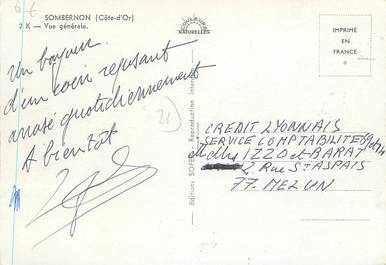 6€
SOMBERNON (Côte-d'Or)
2 K – Vue générale.
COULEURS
NATURELLES
IMPRIMÉ
EN
FRANCE
Un bonjour
d'un coin reposant
arrosé quotidiennement
A bientôt
21
Editions SOFER - Reproduction interdite
CREDIT LYONNAIS
SERVICE COMPTABILITE
Melles IZZO et BARAT
2 Rue St ASPAIS
77. MELUN